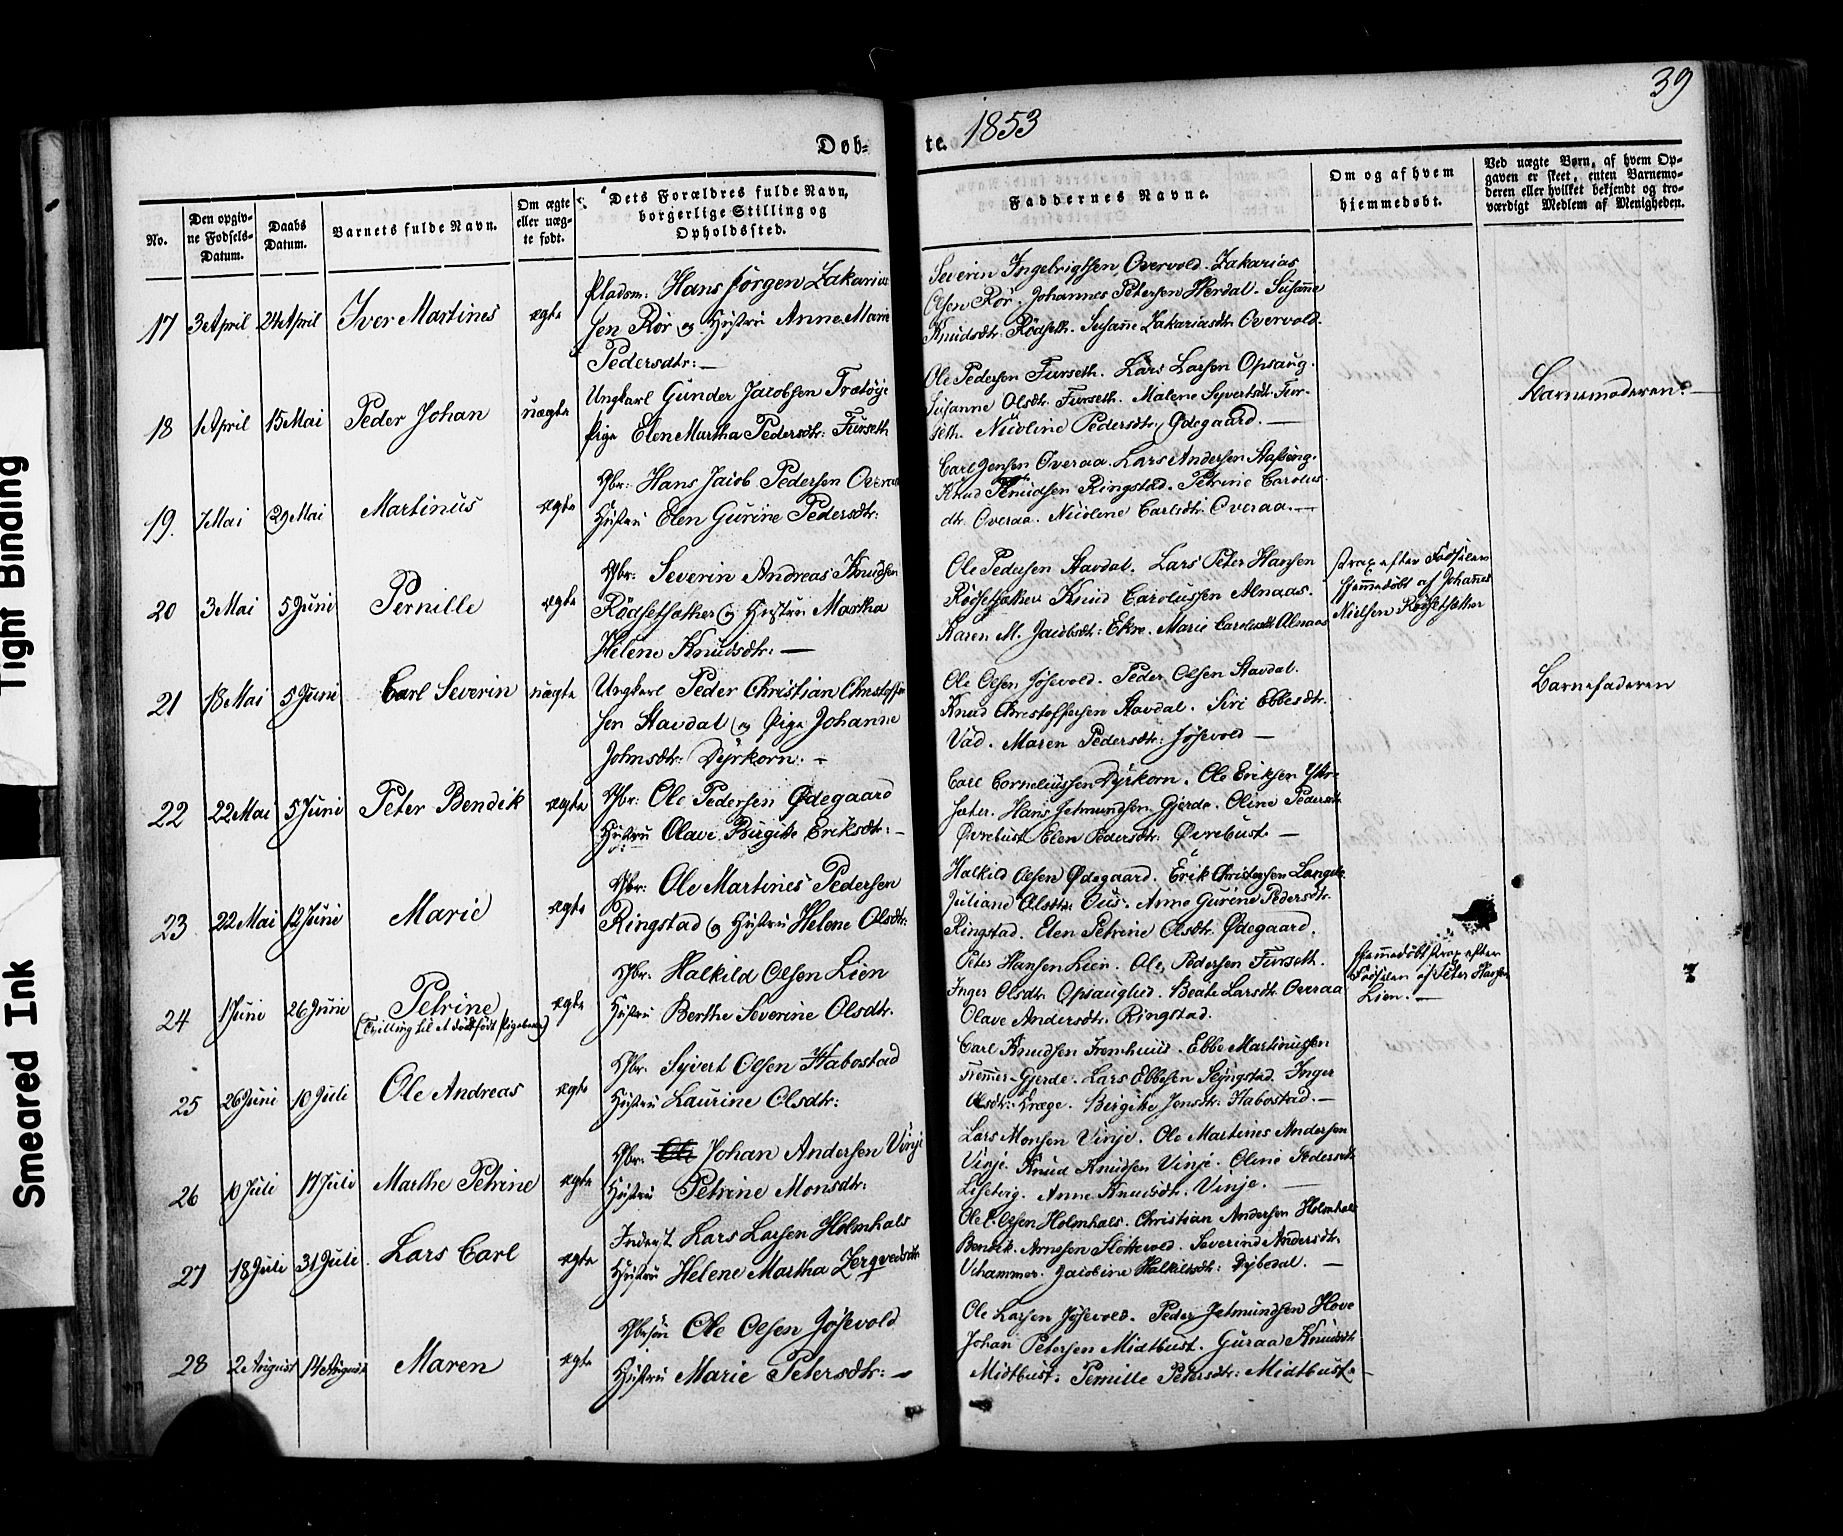 39
Døb=
te. 1853
No.
Den opgiv-
ne Fødsels-
Datum.
Daabs
Datum.
Barnets fulde Navn.
Om ægte
eller uæg-
te født.
Dets Forældres fulde Navn,
borgerlige Stilling og
Opholdssted.
Faddernes Navne.
Om og af hvem
hjemmedøbt.
Ved uægte Børn, af hvem Op-
gaven er skeet, enten Barnemo-
deren eller hvilket bekjendt og tro-
værdigt Medlem af Menigheden.
17 3 April 24 April Iver Martines ægte
Pladsm: Hans Jørgen Zakarias
sen Rør og Hustru Anne Marie
Pedersdtr: —
Severin Ingebrigtsen Overvold. Zakarias
Olsen Rør. Johannes Petersen Herdal. Susanne
Knudsdtr: Rødseth. Susane Zakariasdtr. Overvold.
18 1 April 15 Mai Peder Johan uægte
Ungkarl Gunder Jacobsen Trætøye
Pige Elen Martha Pedersdtr: Furseth
Ole Pedersen Furseth. Lars Larsen Opsaug.
Susanne Olsdtr. Furseth. Malene Syvertsdtr. Fur-
seth. Nicoline Pedersdtr. Ødegaard. —
Barnemoderen. —
19. 7 Mai 29 Mai Martinus ægte
Gbr: Hans Jacob Pedersen Overaa
Hustru Elen Gurine Pedersdtr:
Carl Jensen Overaa. Lars Andersen
Knud Knudsen Ringstad. Petrine Carolus-
dtr. Overaa. Nicoline Carlsdtr: Overaa. —
20 3 Mai 5 Juni Pernille ægte
Gbr: Severin Andreas Knudsen
Rødsetsether og Hustru Martha
Helene Knudsdtr: —
Ole Pedersen Stavdal. Lars Peter Hansen
Rødsetsæther Knud Carolussen Alnaas.
Karen M. Jacobsdtr: Ekre. Marie Carolusdtr. Alnaas
strax efter Fødselen
hjemmedøbt af Johannes
Nielsen Rødsetsæther
21 18 Mai 5 Juni Carl Severin uægte
Ungkarl Peder Christian Christoffer
sen Stavdal og Pige Johanne
Johnsdtr: Dyrkorn: —
Ole Olsen Jøsevold. Peder Olsen Stavdal.
Knud Christoffersen Stavdal. Siri Ebbesdtr.
Vad. Maren Pedersdtr: Jøsevold —
Barnefaderen
22 22 Mai 5 Juni Peter Bendik ægte
Gbr: Ole Pedersen Ødegaard
Hustru Olave Birgitte Eriksdtr: —
Carl Corneliussen Dyrkorn. Ole Eriksen
sæter. Hans Jetmundsen Gjerde. Oline Pedersdtr
Øvrebust Elen Pedersdtr: Øvrebust. —
23 22 Mai 12 Juni Marie ægte
Gbr: Ole Martines Pedersen
Ringstad og Hustru Helene Olsdtr:
Halkild Olsen Ødegaard. Erik Christensen
Juliane Olsdtr. Ous. Anne Gurine Pedersdtr.
Ringstad. Elen Petrine Olsdtr. Ødegaard.
24 1 Juni 26 Juni Petrine ægte
(Tvilling til et dødfødt Pigebarn)
Gbr. Halkild Olsen Lien
Hustru Berthe Severine Olsdtr.
Peter Hansen Lien. Ole Pedersen Furseth.
Inger Olsdtr. Opsauglid. Beate Larsdtr. Overaa
Olave Andersdtr. Ringstad.
hjemmedøbt strax efter
Fødselen af Peter Hansen
Lien. —
25 26 Juni 10 Juli Ole Andreas ægte
Gbr. Syvert Olsen Habostad
Hustru Laurine Olsdtr:
Carl Knudsen Fremhuus. Ebbe Martinussen
Gjerde. Lars Ebbesen Seyngstad. Inger
Olsdtr: Dræge. Birgitte Jonsdtr: Habostad. —
26 10 Juli 17 Juli Marthe Petrine ægte
Gbr. Ole Johan Andersen Vinje
Hustru Petrine Monsdtr:
Lars Monsen Vinje. Ole Martines Andersen
Vinje. Knud Knudsen Vinje. Oline Pedersdtr
Anne Knudsdtr: Vinje. —
27 18 Juli 31 Juli Lars Carl ægte
Inderst Lars Larsen Holmhals
Hustru Helene Martha
Ole C. Olsen Holmhals. Christian Andersen Holmhals
Bendik Arnesen Slottevold. Severine Andersdtr.
Uhammer. Jacobine Halkildsdtr: Dybedal. —
28 2 August 14 August Maren ægte
Ole Olsen Jøsevold
Hustru Marie Petersdtr: —
Ole Larsen Jøsevold. Peder Jetmundsen Hove
Johan Petersen Midtbust. Guraa Knudsdtr
Midtbust. Pernille Petersdtr: Midtbust. —
Tight Binding
Smeared Ink